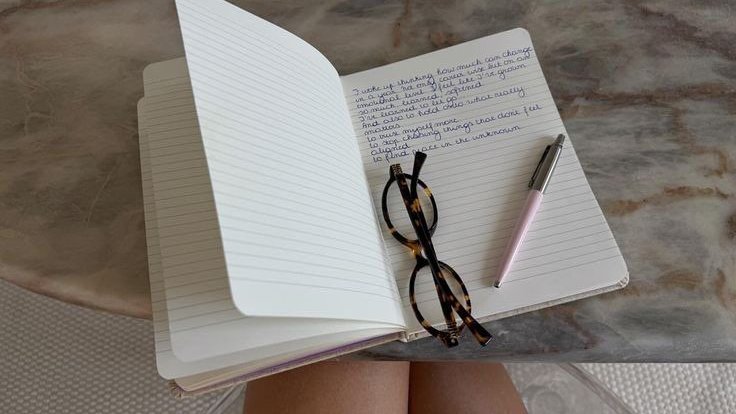 I woke up thinking how much can change
in a year. Not only career wise but on an
emotional level. I feel like I've grown
so much, learned, softened
I've learned to let go
And also to hold onto what really
matters.
to trust myself more
to stop chasing things that dont feel
aligned
to find peace in the unknown